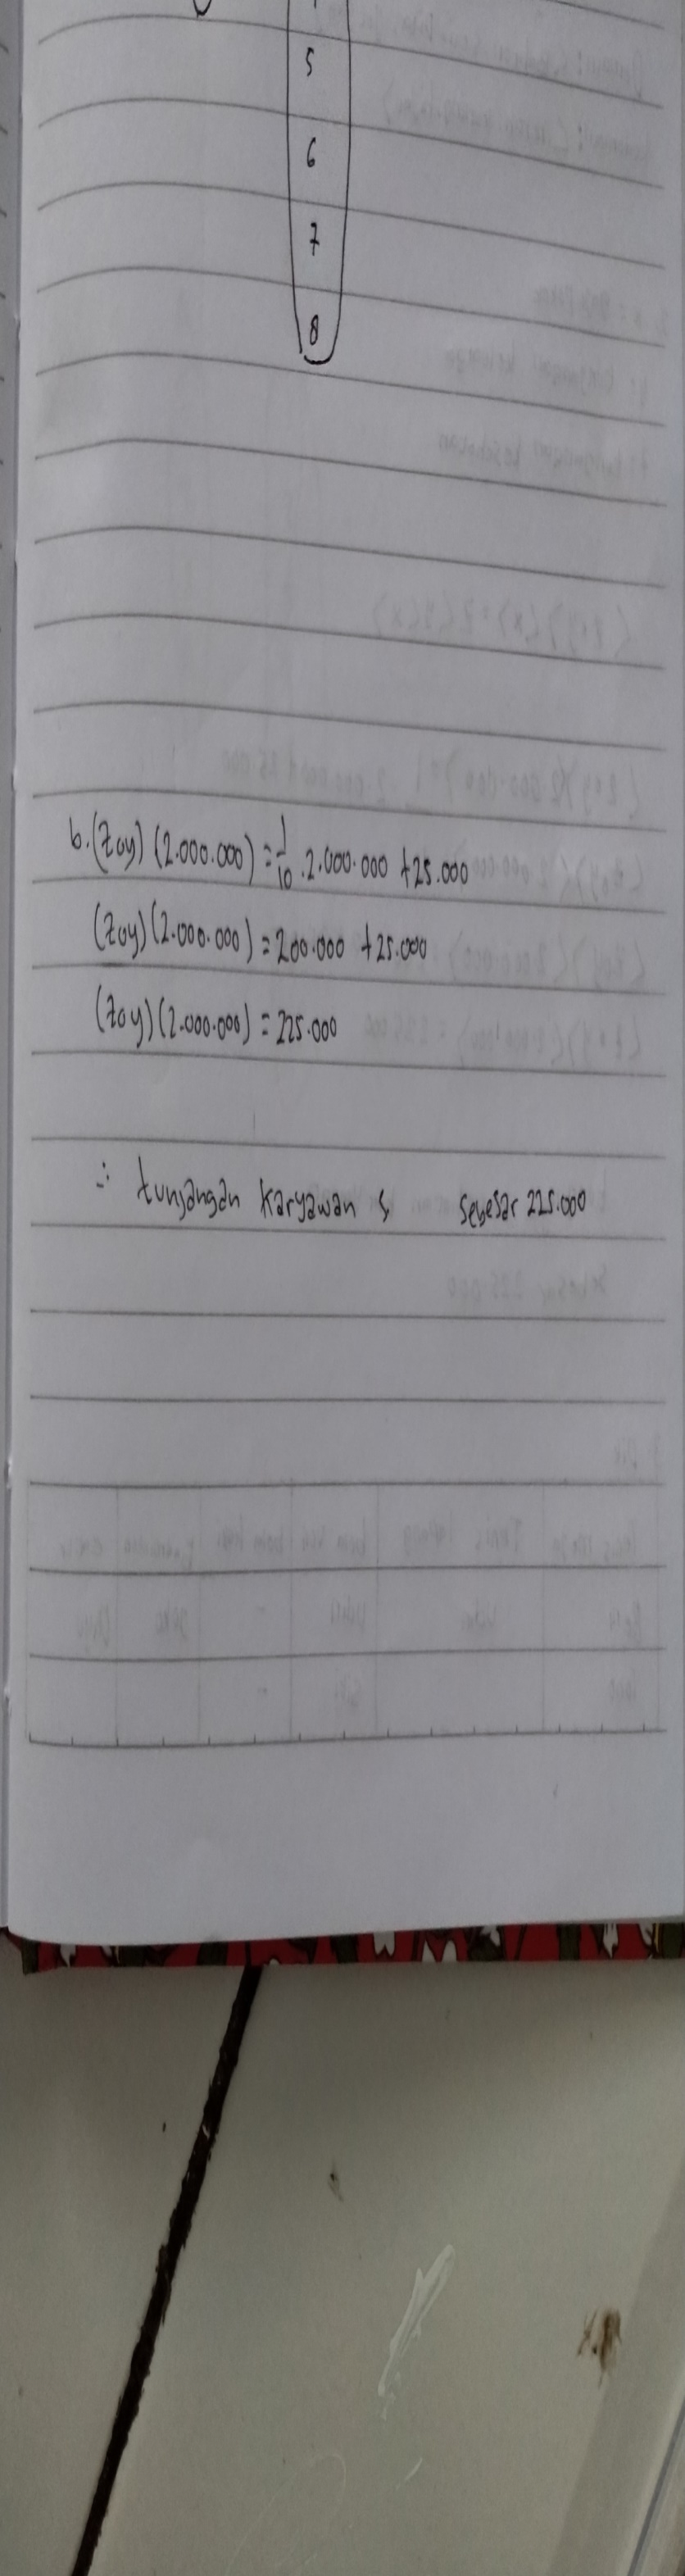 5
6
7
8
b. (zoy) (2.000.000) = 1/10 . 2.000.000 + 25.000
(zoy) (2.000.000) = 200.000 + 25.000
(zoy) (2.000.000) = 225.000
∴ tunjangan karyawan s sebesar 225.000